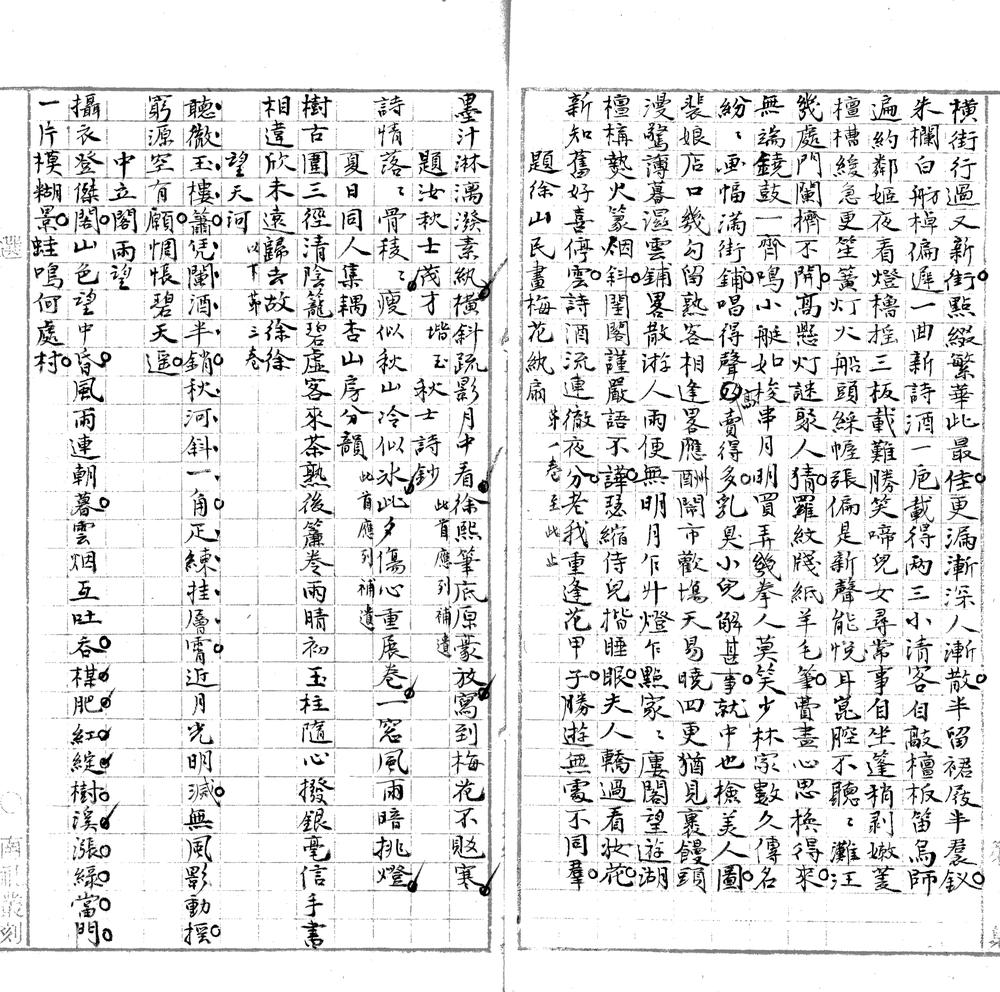 橫街行過又新街點綴繁華此最佳更漏漸深人漸散半留裙屐半羣釵
朱欄白舫棹偏遲一曲新詩酒一巵載得兩三小清客自敲檀板笛烏師
遍約鄰姬夜看燈櫓搖三板載難勝笑啼兒女尋常事自坐篷稍剥嫩菱
檀槽緩急更笙簧灯火船頭綵幄張偏是新聲能悅耳崑腔不聽聽灘汪
幾處門闌擠不開高懸灯謎聚人猜羅紋牋紙羊毛筆費盡心思換得來
無端鐃鼓一齊鳴小艇如梭串月明買弄幾拳人莫笑少林家數久傳名
紛紛畫幅滿街鋪唱得聲高賣得多乳臭小兒解甚事就中也檢美人圖
裴娘店口幾勾留熟客相逢畧應酬鬧市歡塲天易曉四更猶見裹饅頭
漫驚薄暮濕雲鋪畧散游人雨便無明月乍升燈乍點家家廔閣望遊湖
檀構爇火篆烟斜閨閣謹嚴語不譁瑟縮侍兒揩睡眼夫人轎過看妝花
新知舊好喜停雲詩酒流連徹夜分老我重逢花甲子勝遊無處不同羣
題徐山民畫梅花紈扇 苐一卷至此止
墨汁淋漓潑素紈橫斜疏影月中看徐熙筆底原豪放寫到梅花不敗寒
題汝秋士茂才堦玉秋士詩鈔 此首應列補遺
詩情落落骨稜稜瘦似秋山冷似冰此夕傷心重展卷一窓風雨暗挑燈
夏日同人集耦杏山房分韻 此首應列補遺
樹古圍三徑清陰籠碧虛客來茶熟後簾卷雨晴初玉柱隨心撥銀毫信手書
相違欣未遠歸去故徐徐
望天河 以下苐三卷
聽徹玉樓簫凭闌酒半銷秋河斜一角疋練挂層霄近月光明滅無風影動搖
窮源空有願惆悵碧天遥
中立閣雨望
攝衣登傑閣山色望中昏風雨連朝暮雲烟互吐吞楳肥紅綻樹溪漲綠當門
一片模糊景蛙鳴何處村
選
南社叢刻